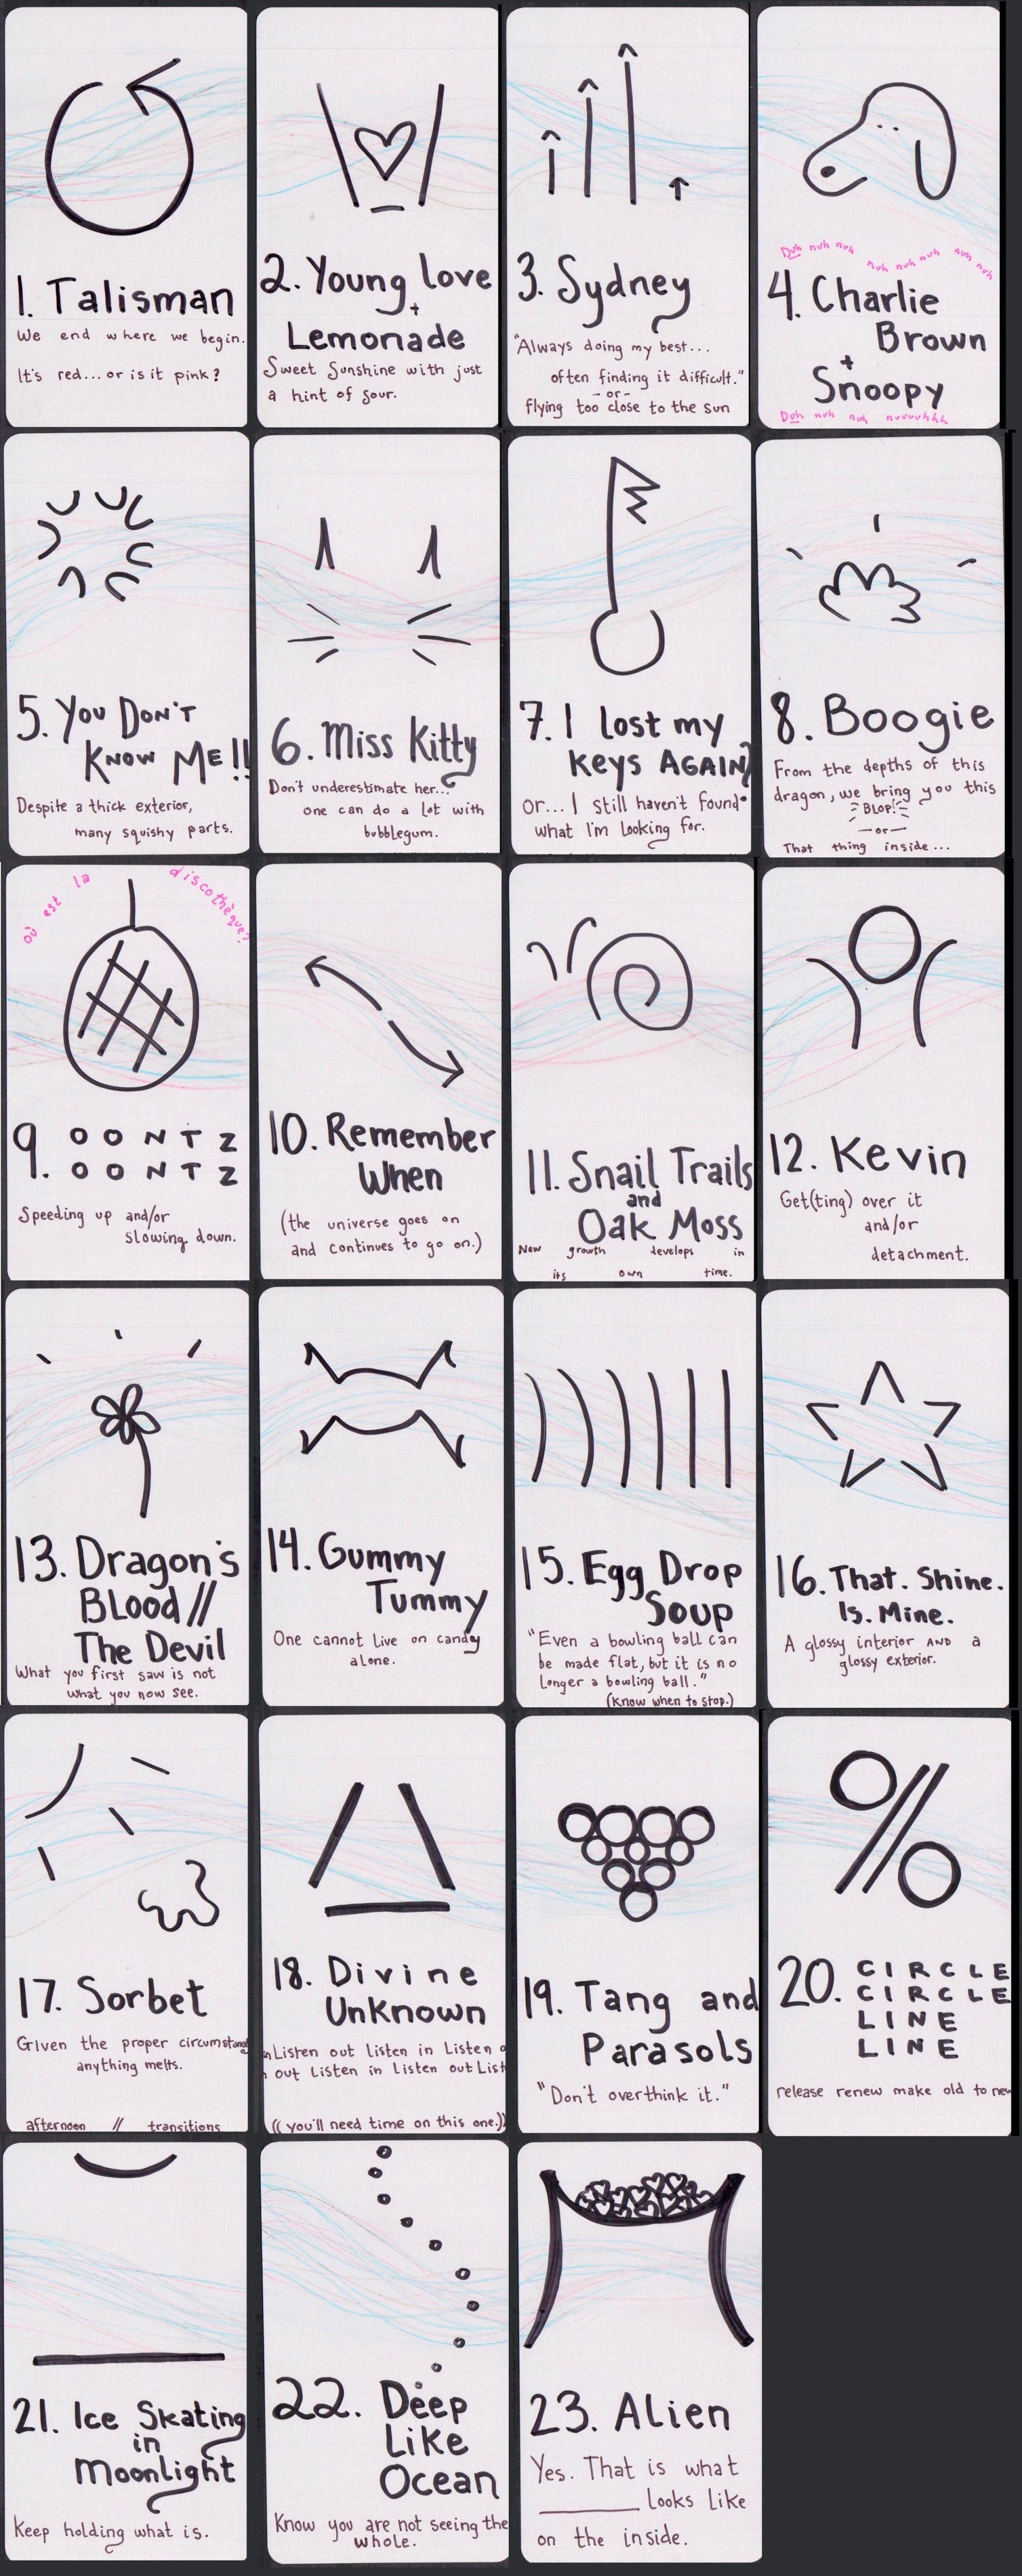 1. Talisman
We end where we begin.
It's red... or is it pink?
2. Young love
+
Lemonade
Sweet Sunshine with just
a hint of sour.
3. Sydney
"Always doing my best...
often finding it difficult."
-or-
flying too close to the sun
Duh nuh nuh nuh nuh nuh nuh nuh
4. Charlie
Brown
+
Snoopy
Duh nuh nuh nuuuuhhh
5. YOU DON'T
KNOW ME!!
Despite a thick exterior,
many squishy parts.
6. Miss Kitty
Don't underestimate her...
one can do a lot with
bubblegum.
7. I lost my
keys AGAIN?
or... I still haven't found
what I'm looking for.
8. Boogie
From the depths of this
dragon, we bring you this
BLOP!
-or-
That thing inside...
où est la discothèque?
9. OONTZ
OONTZ
Speeding up and/or
slowing down.
10. Remember
When
(the universe goes on
and continues to go on.)
11. Snail Trails
and
Oak Moss
New growth develops in
its own time.
12. Kevin
Get(ting) over it
and/or
detachment.
13. Dragon's
Blood//
The Devil
What you first saw is not
what you now see.
14. Gummy
Tummy
One cannot live on candy
alone.
15. Egg Drop
Soup
"Even a bowling ball can
be made flat, but it is no
longer a bowling ball."
(Know when to stop.)
16. That. Shine.
Is. Mine.
A glossy interior AND a
glossy exterior.
17. Sorbet
Given the proper circumstance
anything melts.
afternoon // transitions
18. Divine
Unknown
Listen out listen in Listen
out Listen in Listen out List
((you'll need time on this one.))
19. Tang and
Parasols
"Don't overthink it."
20. CIRCLE
CIRCLE
LINE
LINE
release renew make old to new
21. Ice Skating
in
Moonlight
Keep holding what is.
22. Deep
Like
Ocean
Know you are not seeing the
whole.
23. Alien
Yes. That is what
________ looks like
on the inside.